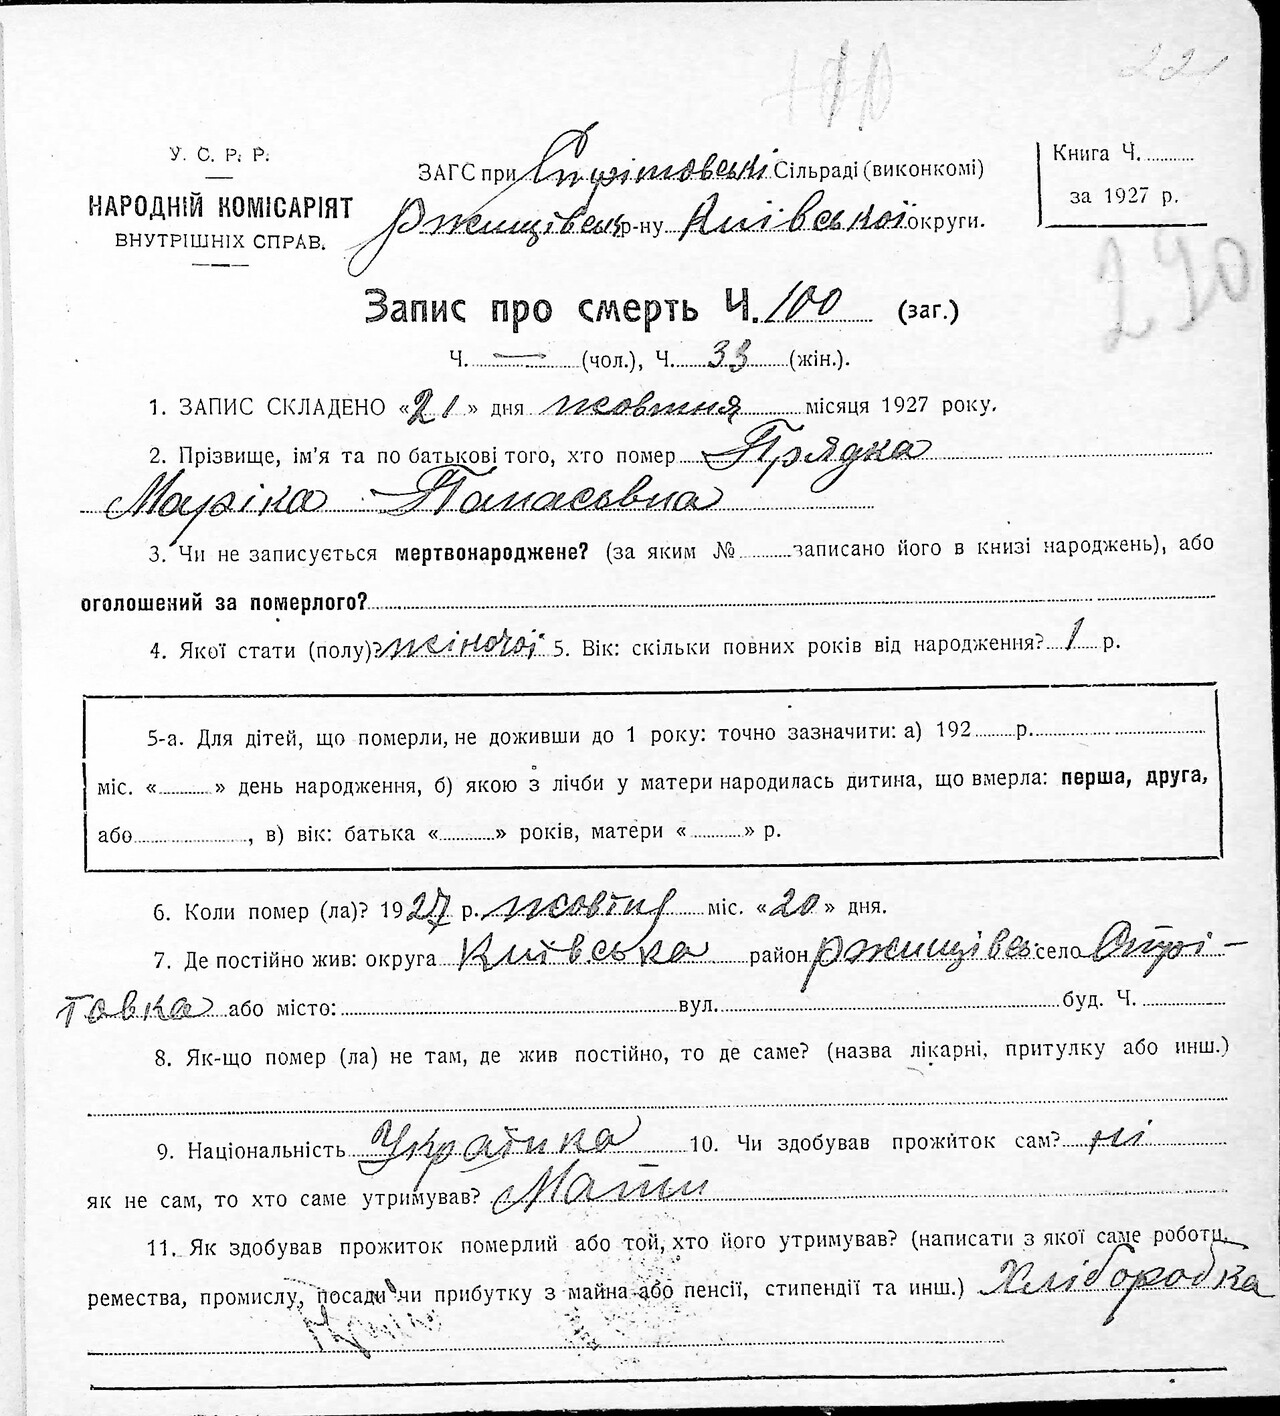 221
У. С. Р. Р.
НАРОДНІЙ КОМІСАРІЯТ
ВНУТРІШНІХ СПРАВ.
ЗАГС при Стрітовські Сільраді (виконкомі)
Ржищівськ р-ну Київської округи.
Книга Ч.
за 1927 р.
290
Запис про смерть Ч. 100 (заг.)
Ч. — (чол.), Ч. 33 (жін.).
1. ЗАПИС СКЛАДЕНО «21» дня жовтня місяця 1927 року.
2. Прізвище, ім'я та по батькові того, хто помер Прядка
Маріка Панасьвна
3. Чи не записується мертвонароджене? (за яким № записано його в книзі народжень), або
оголошений за померлого?
4. Якої стати (полу)? жіночої 5. Вік: скільки повних років від народження? 1 р.
5-а. Для дітей, що померли, не доживши до 1 року: точно зазначити: а) 192 р.
міс. « » день народження, б) якою з лічби у матери народилась дитина, що вмерла: перша, друга,
або , в) вік: батька « » років, матери « » р.
6. Коли помер (ла)? 1927 р. жовтня міс. «20» дня.
7. Де постійно жив: округа Київська район Ржищівсь село Стрі-
товка або місто: вул. буд. Ч.
8. Як-що помер (ла) не там, де жив постійно, то де саме? (назва лікарні, притулку або инш.)
9. Національність Українка 10. Чи здобував прожиток сам? ні
як не сам, то хто саме утримував? Мати
11. Як здобував прожиток померлий або той, хто його утримував? (написати з якої саме роботи,
ремества, промислу, посади чи прибутку з майна або пенсії, стипендії та инш.) Хлібородка